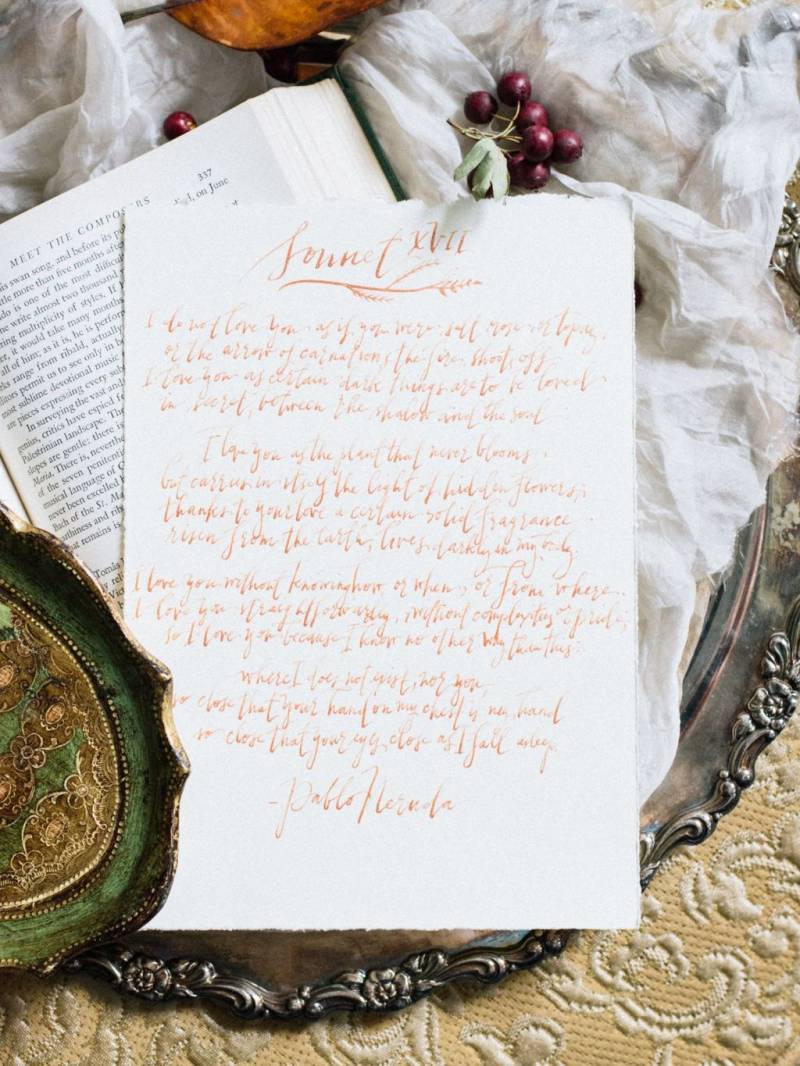 337
MEET THE COMPOSERS
on June
swan song, and before its
more than five months after
is one of the most
was almost two thousand
multiplicity of styles.
it would take many months
all of him; as it is, he is
range from ribald, actually
permit us to see only in
most sublime devotional music
are pieces expressing every
In surveying the vast and
genius, critics have espied
Palestinian landscape. The
slopes are gentle; there
There is,
of the seven
musical language of
never been excelled
Bach of the St.
and
that remains is
Tomás
Sonnet XVII
I do not love you as if you were salt rose or topaz,
or the arrow of carnations the fire shoots off
I love you as certain dark things are to be loved
in secret, between the shadow and the soul
I love you as the plant that never blooms
but carries in itself the light of hidden flowers;
thanks to your love a certain solid fragrance
risen from the earth, lives darkly in my body.
I love you without knowing how, or when, or from where.
I love you straightforwardly, without complexities or pride;
so I love you because I know no other way than this:
where I does not exist, nor you,
so close that your hand on my chest is my hand
so close that your eyes close as I fall asleep.
-Pablo Neruda